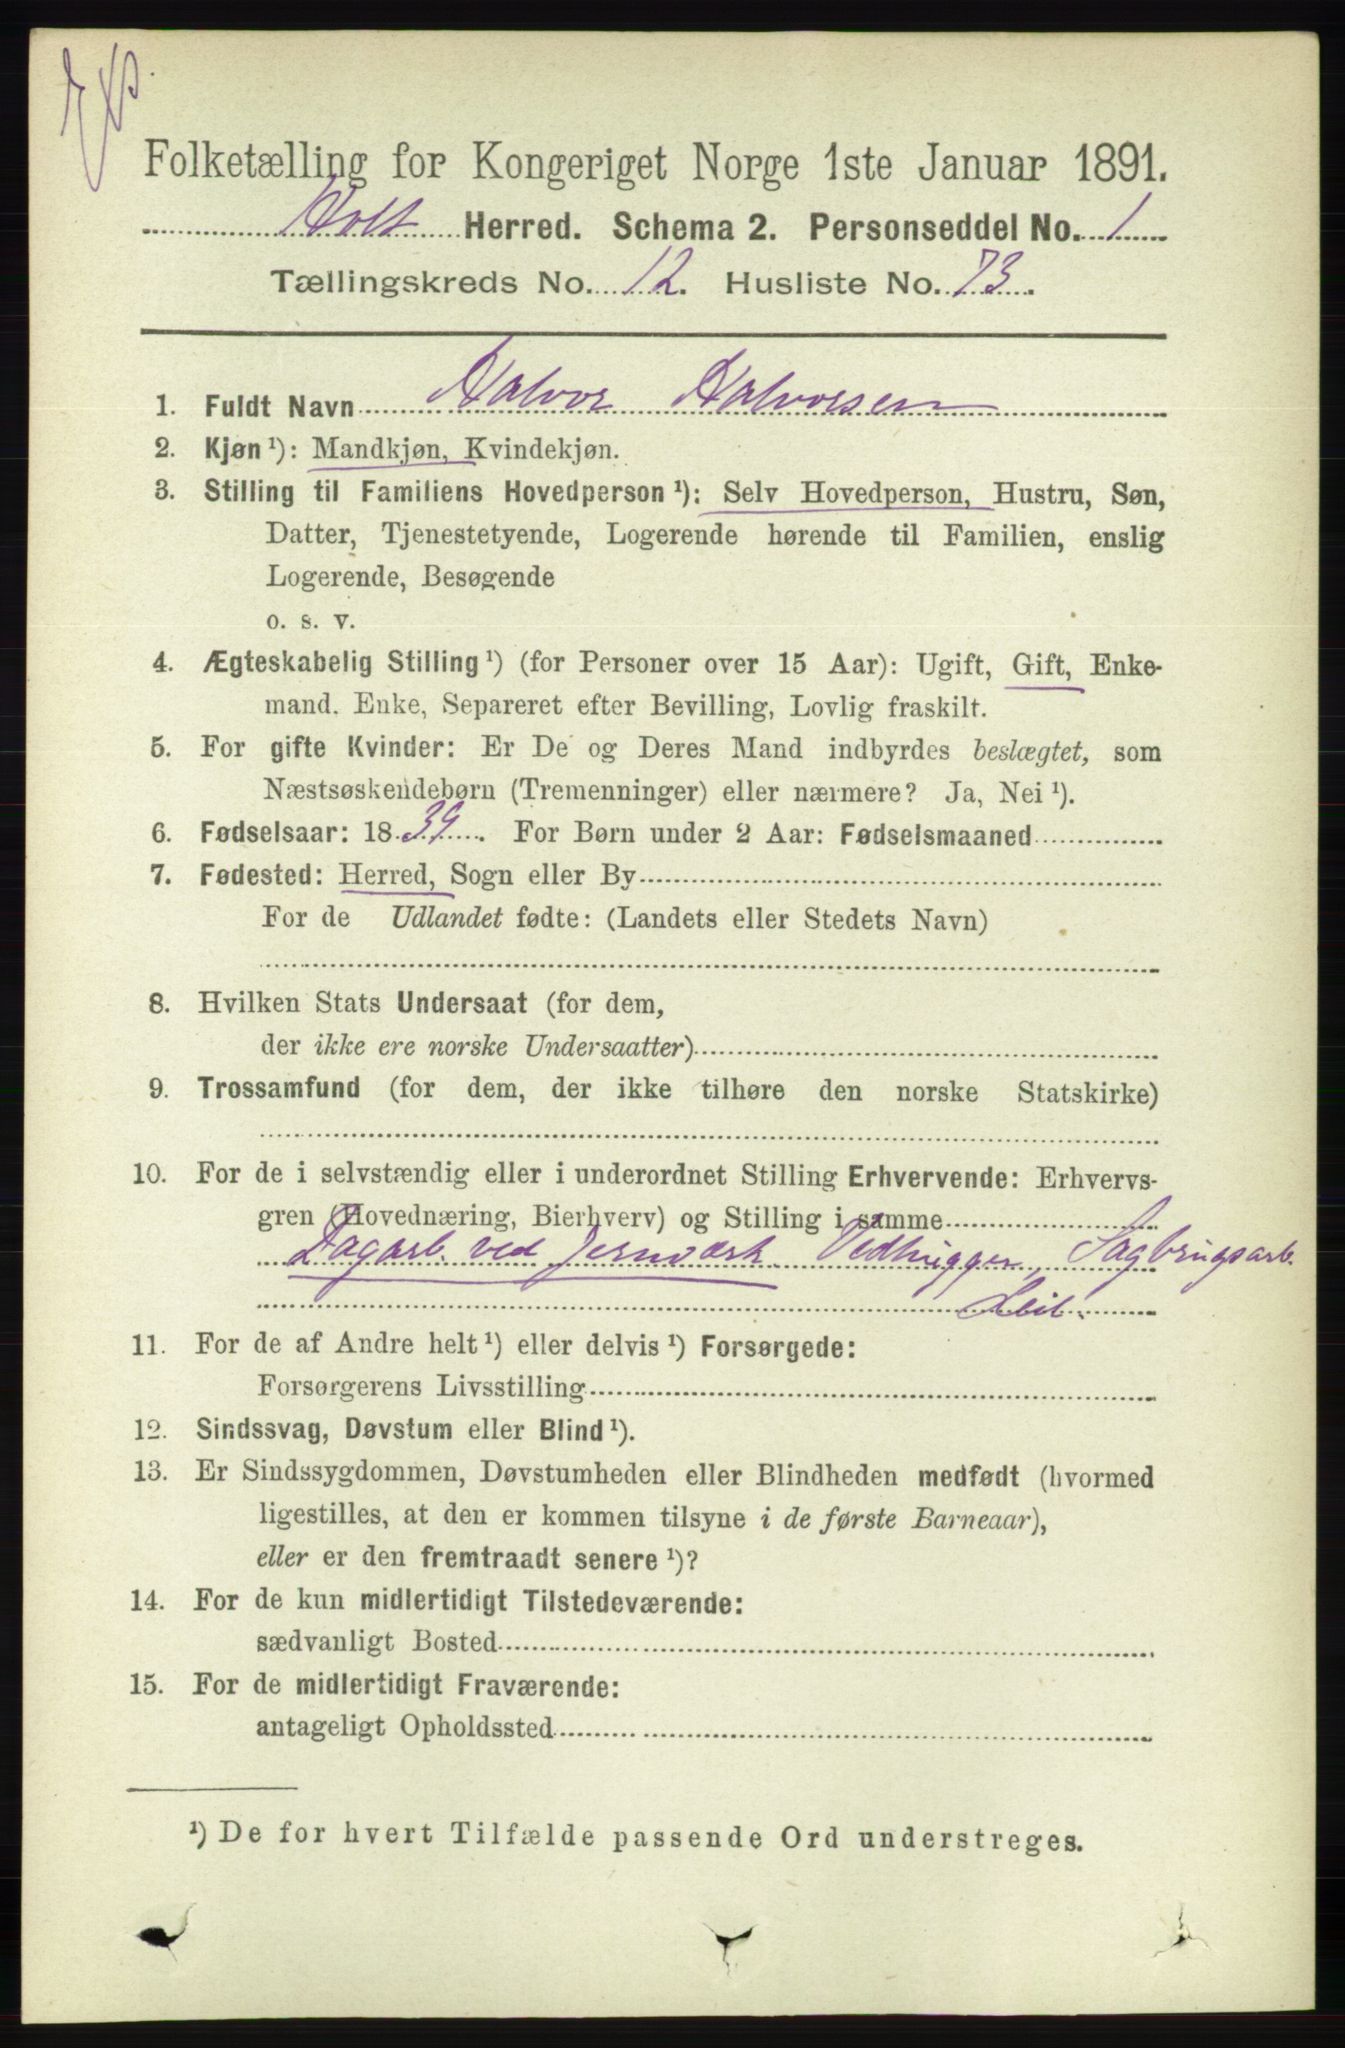 Folketælling for Kongeriget Norge 1ste Januar 1891.
Holt Herred. Schema 2. Personseddel No. 1
Tællingskreds No. 12. Husliste No. 73.
1. Fuldt Navn Halvor Halvorsen
2. Kjøn ¹): Mandkjøn, Kvindekjøn.
3. Stilling til Familiens Hovedperson ¹): Selv Hovedperson, Hustru, Søn,
Datter, Tjenestetyende, Logerende hørende til Familien, enslig
Logerende, Besøgende
o. s. v.
4. Ægteskabelig Stilling ¹) (for Personer over 15 Aar): Ugift, Gift, Enke-
mand. Enke, Separeret efter Bevilling, Lovlig fraskilt.
5. For gifte Kvinder: Er De og Deres Mand indbyrdes beslægtet, som
Næstsøskendebørn (Tremenninger) eller nærmere? Ja, Nei ¹).
6. Fødselsaar: 1839. For Børn under 2 Aar: Fødselsmaaned
7. Fødested: Herred, Sogn eller By
For de Udlandet fødte: (Landets eller Stedets Navn)
8. Hvilken Stats Undersaat (for dem,
der ikke ere norske Undersaatter)
9. Trossamfund (for dem, der ikke tilhøre den norske Statskirke)
10. For de i selvstændig eller i underordnet Stilling Erhvervende: Erhvervs-
gren (Hovednæring, Bierhverv) og Stilling i samme
Dagarb. ved Jernværk. Vedhugger, Sagbrugsarb.
11. For de af Andre helt ¹) eller delvis ¹) Forsørgede:
Forsørgerens Livsstilling
12. Sindssvag, Døvstum eller Blind ¹).
13. Er Sindssygdommen, Døvstumheden eller Blindheden medfødt (hvormed
ligestilles, at den er kommen tilsyne i de første Barneaar),
eller er den fremtraadt senere ¹)?
14. For de kun midlertidigt Tilstedeværende:
sædvanligt Bosted
15. For de midlertidigt Fraværende:
antageligt Opholdssted
¹) De for hvert Tilfælde passende Ord understreges.